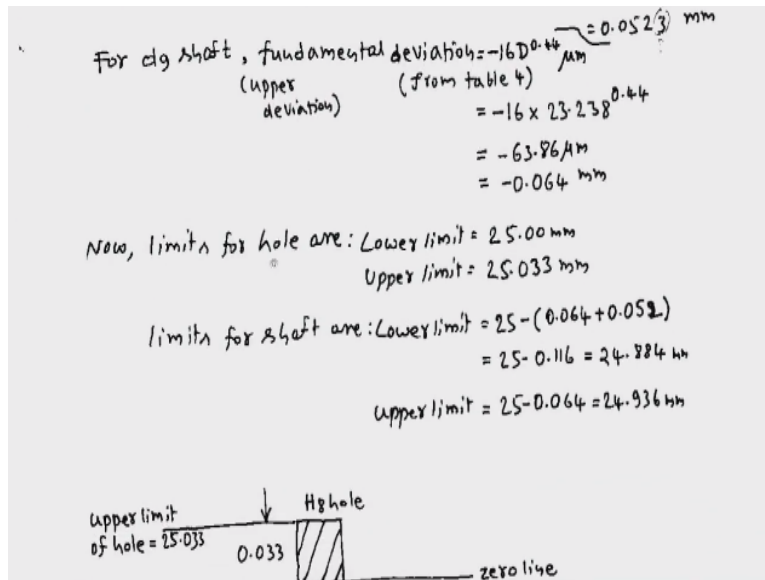 = 0.0523 mm
For d9 shaft, fundamental deviation = -16D^0.44 μm
(upper deviation) (from table 4)
= -16 x 23.238^0.44
= -63.86 μm
= -0.064 mm
Now, limits for hole are: Lower limit = 25.00 mm
Upper limit = 25.033 mm
limits for shaft are: Lower limit = 25-(0.064+0.052)
= 25-0.116 = 24.884 mm
upper limit = 25-0.064 = 24.936 mm
H8 hole
upper limit
of hole = 25.033
0.033
zero line